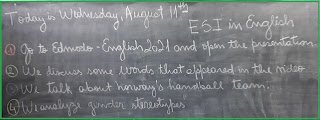 Today is Wednesday, August 11th
ESI in English
1 Go to Edmodo - English 2021 and open the presentation.
2 We discuss some words that appeared in the video
3 We talk about norway's handball team.
4 We analyze gender stereotypes